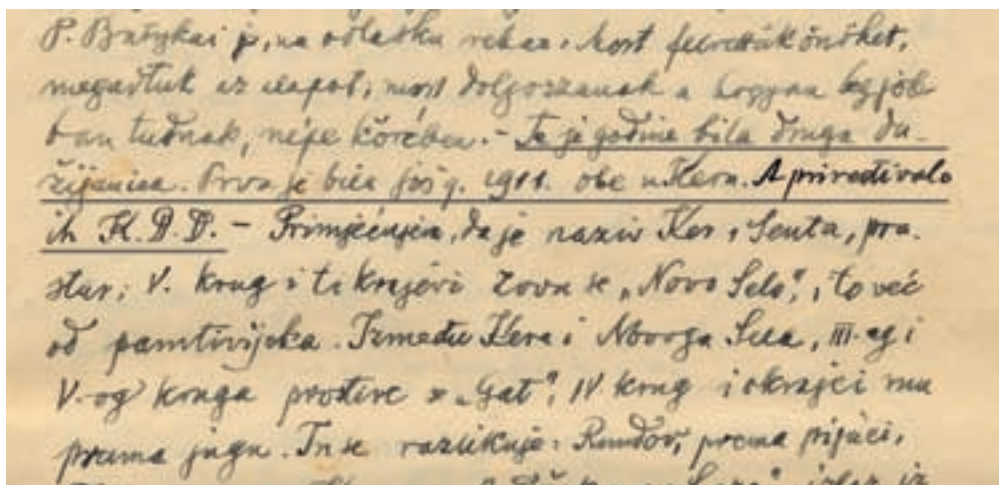 P. Bašykai je, na odlasku rekao: Most felvettük önöket,
megadtuk az alapot, most dolgozzanak a hogyan legjob
ban tudnak, népe körében. – Te je godine bila druga du-
žijanca. Prva je bila još g. 1911. obe u Keru. A priređivalo
ih K.D.D. – Primjećujem, da je naziv Ker i Senta, pra
star; V. krug i ti krajevi zovu se „Novo Selo", i to već
od pamtivijeka. Između Kera i Novoga Sela, III-eg i
V-og kruga prostire se „Gat", IV krug i okrajci mu
prama jugu. Tu se razlikuje: Rundov, prema pijaci,